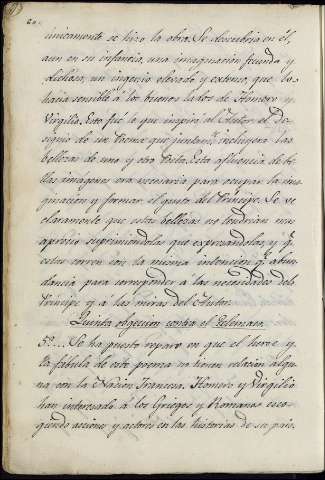 únicamente se hizo la obra. Se descubria en él,
aun en su infancia, una imaginación fecunda y
dichosa, un ingenio elevado y extenso, que lo
hacia sensible á los buenos lados de Homero y
Virgilio. Esto fué lo que inspiró al Autor el De-
signio de un Poema que juntamte. incluyera las
bellezas de uno y otro Poeta. Esta afluencia de be-
llas imágenes era necesaria para ocupar la ima-
ginación y formar el gusto del Príncipe. Se ve
claramente que estas bellezas no tendrían mas
aprecio suprimiéndolas que expresándolas, y q.
estas corren con la misma intención q. abun-
dancia para corresponder á las necesidades del
Príncipe y á las miras del Autor.
Quinta objeción contra el Telémaco.
5a... Se ha puesto reparo en que el heroe y
la fábula de este poema no tienen relación algu-
na con la Nación Francesa. Homero y Virgilio
han interesado á los Griegos y Romanos esco-
giendo acciones y actores en las historias de su país.